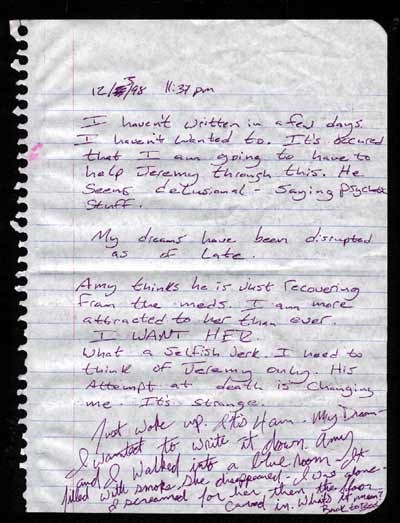 12/3/98 11:37 pm
I haven't written in a few days.
I haven't wanted to. It's occured
that I am going to have to
help Jeremy through this. He
seems delusional - saying psychotic
stuff.
My dreams have been disrupted
as of late.
Amy thinks he is just recovering
from the meds. I am more
attracted to her than ever.
I WANT HER.
What a selfish jerk. I need to
think of Jeremy only. His
Attempt at death is changing
me. It's strange.
Just woke up. It's 4am. My Dream-
I wanted to write it down. Amy
and I walked into a blue room - It
filled with smoke. She disappeared - I was alone.
I screamed for her then the floor
caved in. What's it mean?
Back to bed